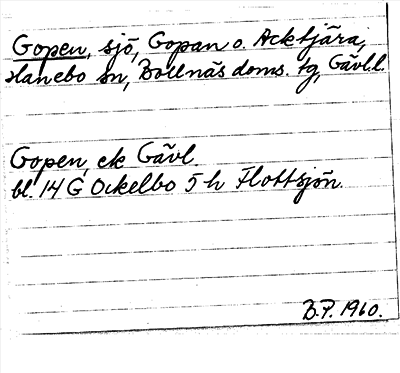 Gopen, sjö, Gopan o. Acktjära,
Hanebo sn, Bollnäs doms. tg, Gävl.l.
Gopen, ek Gävl.
bl. 14 G Ockelbo 5 h Flottsjön.
B.P. 1960.